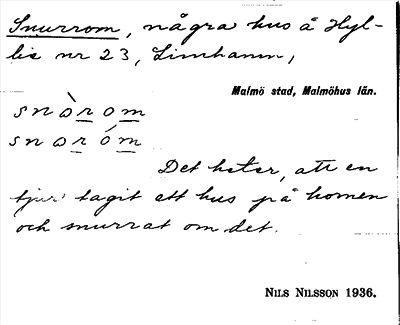 Snurrom, några hus å Hyl-
lie nr 23, Limhamn,
Malmö stad, Malmöhus län.
snὼrom
snωróm
Det heter, att en
tjur tagit ett hus på hornen
och snurrat om det.
NILS NILSSON 1936.